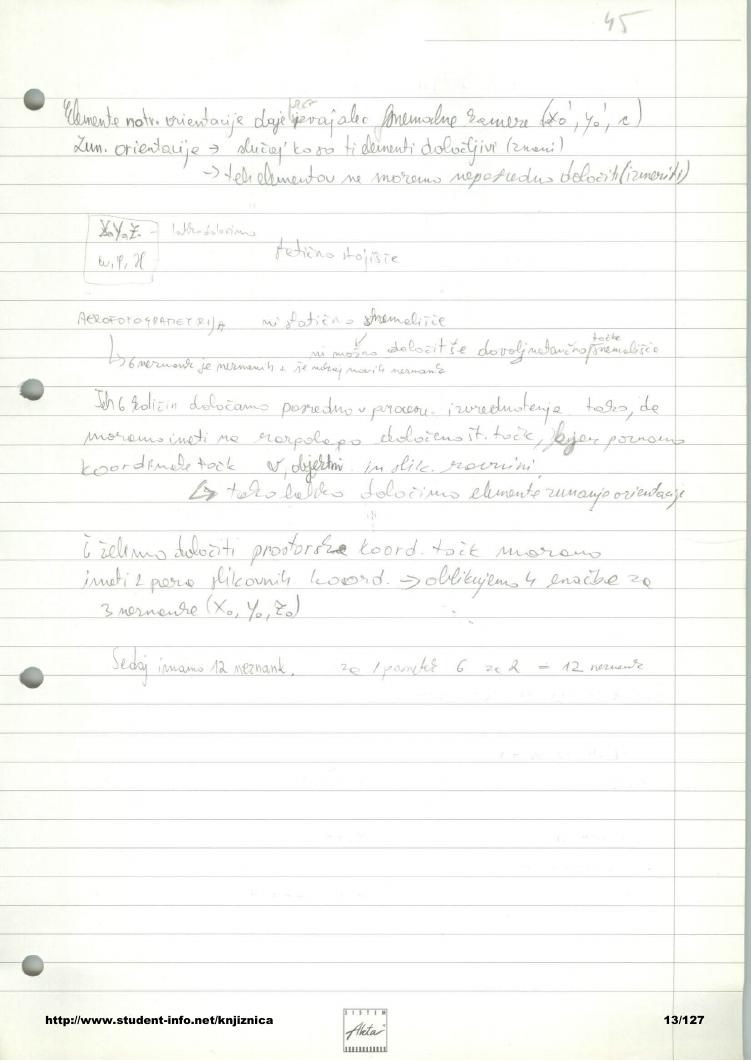 45
Elemente notr. orientacije daje proizvajalec snemalne kamere (x₀', y₀', c)
Zun. orientacije → slučaj ko so ti elementi določljivi (znani)
→ teh elementov ne moremo neposredno določiti (izmeriti)
X₀ Y₀ Z₀ - lahko določimo
ω, φ, ϰ
statično stojišče
AEROFOTOGRAMETRIJA ni statično snemališče
ni možno določit še dovolj natančno točke snemališča
↳ 6 neznank je neznanih + še nekaj novih neznank
Teh 6 količin določamo posredno v procesu izvrednotenja tako, da
moramo imeti na razpolago določeno št. točk, kjer poznamo
koordinate točk v objektni in slik. ravnini
↳ tako lahko določimo elemente zunanje orientacije
Č želimo določiti prostorske koord. točk moramo
imeti 2 para slikovnih koord. → oblikujemo 4 enačbe za
3 neznanke (X₀, Y₀, Z₀)
Sedaj imamo 12 neznank. za 1 6 za 2 = 12 neznank
http://www.student-info.net/knjiznica
SISTEM
Akta
13/127